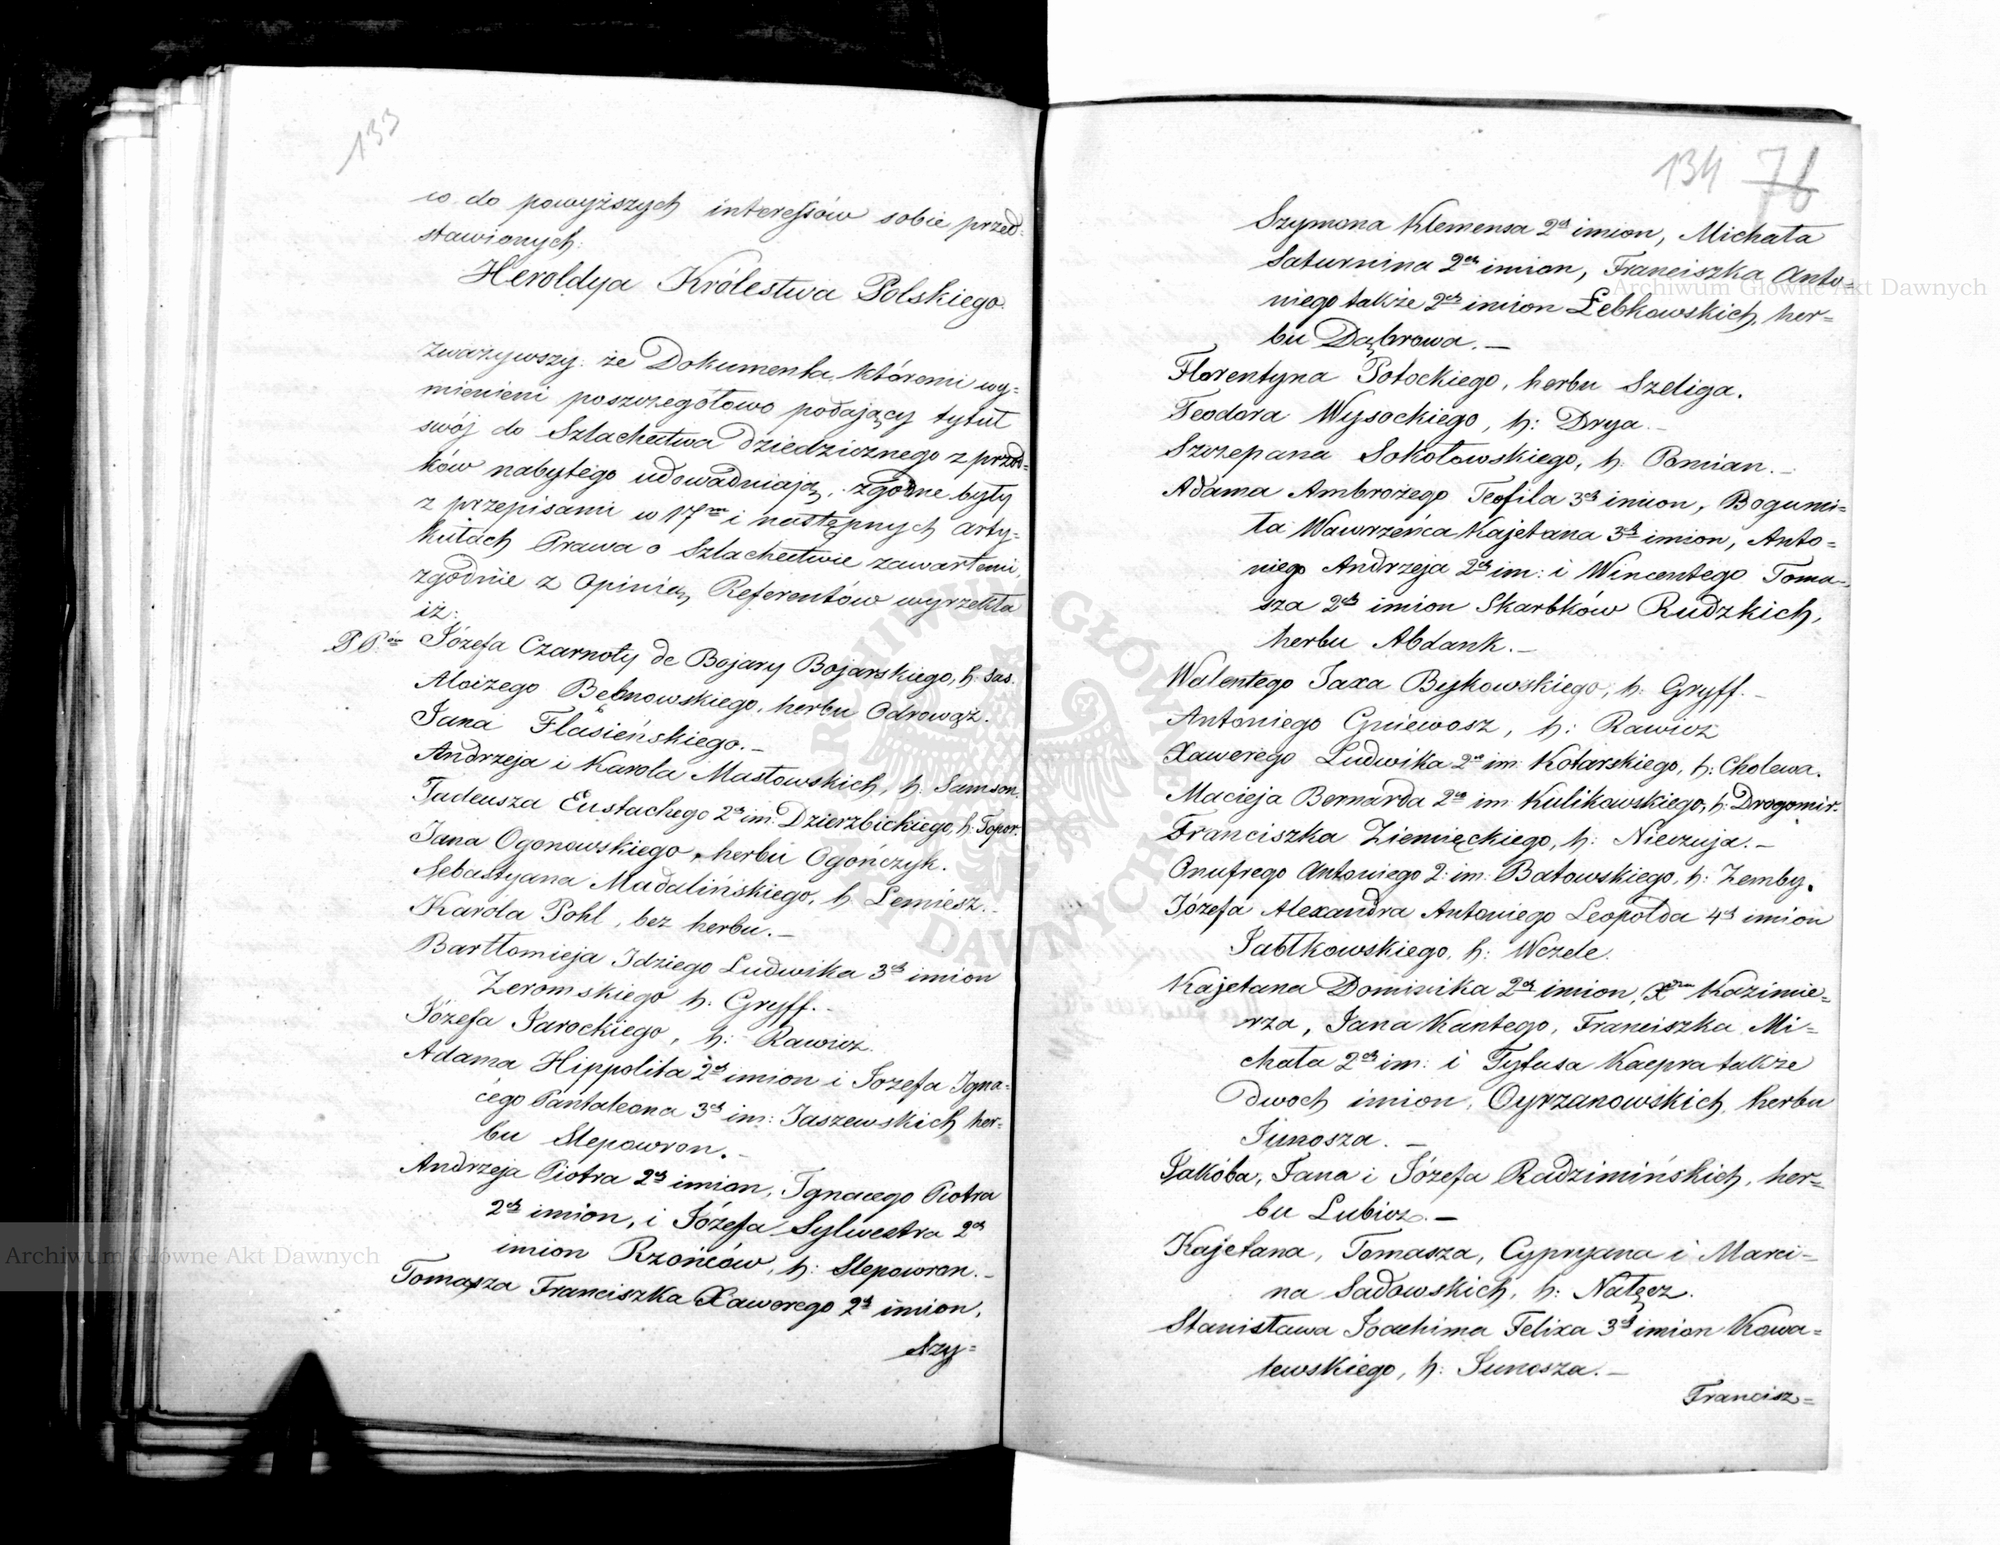 133
co do powyższych interessów sobie przed=
stawionych:
Heroldya Królestwa Polskiego.
zważywszy: że Dokumenta, któremi wy=
mienieni poszczegółowo podający tytuł
swój do Szlachectwa dziedzicznego z przod=
ków nabytego udowadniają, zgodne były
z przepisami w 17m i następnych arty=
kułach Prawa o Szlachectwie zawartemi,
zgodnie z Opinią Referentów wyrzekła
iż:
PP.ów Józefa Czarnoty de Bojary Bojarskiego, h: Sas.
Aloizego Bębnowskiego, herbu Odrowąż.
Jana Flasieńskiego.–
Andrzeja i Karola Masłowskich, h: Samson.
Tadeusza Eustachego 2ch im: Dzierzbickiego, h: Topor.
Jana Ogonowskiego, herbu Ogończyk.
Sebastyana Madalińskiego, h: Lemiesz.–
Karola Pohl, bez herbu.–
Bartłomieja Idziego Ludwika 3ch imion
Zeromskiego h: Gryff.–
Józefa Jarockiego, h: Rawicz.
Adama Hippolita 2ch imion i Jozefa Igna=
cego Pantaleona 3ch im: Jaszewskich her=
bu Slepowron.–
Andrzeja Piotra 2ch imion, Ignacego Piotra
2ch imion, i Józefa Sylwestra 2ch
imion Rzońców, h: Slepowron.–
Tomasza Franciszka Xawerego 2ch imion,
Szy=
134 76
Szymona Klemensa 2ch imion, Michała
Saturnina 2ch imion, Franciszka Anto=
niego także 2ch imion Łebkowskich, her=
bu Dąbrowa.–
Florentyna Potockiego, herbu Szeliga.
Teodora Wysockiego, h: Drya.–
Szczepana Sokołowskiego, h: Pomian.–
Adama Ambrożego Teofila 3ch imion, Bogumi=
ła Wawrzeńca Kajetana 3ch imion, Anto=
niego Andrzeja 2ch im: i Wincentego Toma=
sza 2ch imion Skarbków Rudzkich,
herbu Abdank.–
Walentego Jaxa Bykowskiego, h: Gryff.–
Antoniego Gniewosz, h: Rawicz
Xawerego Ludwika 2ch im: Kotarskiego, h: Cholewa.
Macieja Bernarda 2ch im: Kulikowskiego, h: Drogomir.
Franciszka Ziemięckiego, h: Nieczuja.–
Onufrego Antoniego 2: im: Batowskiego, h: Zemby.
Józefa Alexandra Antoniego Leopolda 4ch imion
Jabłkowskiego, h: Wczele.
Kajetana Dominika 2ch imion, Xdza Kazimie=
rza, Jana Kantego, Franciszka Mi=
chała 2ch im: i Tytusa Kacpra także
dwoch imion, Oyrzanowskich, herbu
Junosza.–
Jakóba, Jana i Józefa Radzimińskich, her=
bu Lubicz.–
Kajetana, Tomasza, Cypryana i Marci=
na Sadowskich, h: Nałęcz.
Stanisława Joachima Felixa 3ch imion Kowa=
lewskiego, h: Junosza.–
Francisz=
Archiwum Główne Akt Dawnych
Archiwum Główne Akt Dawnych
ARCHIWUM GŁÓWNE AKT DAWNYCH